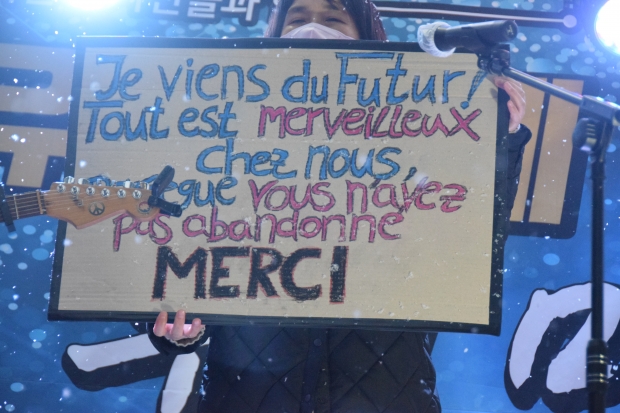 Je viens du Futur!
Tout est merveilleux
chez nous,
vous n'avez
pas abandonné
MERCI